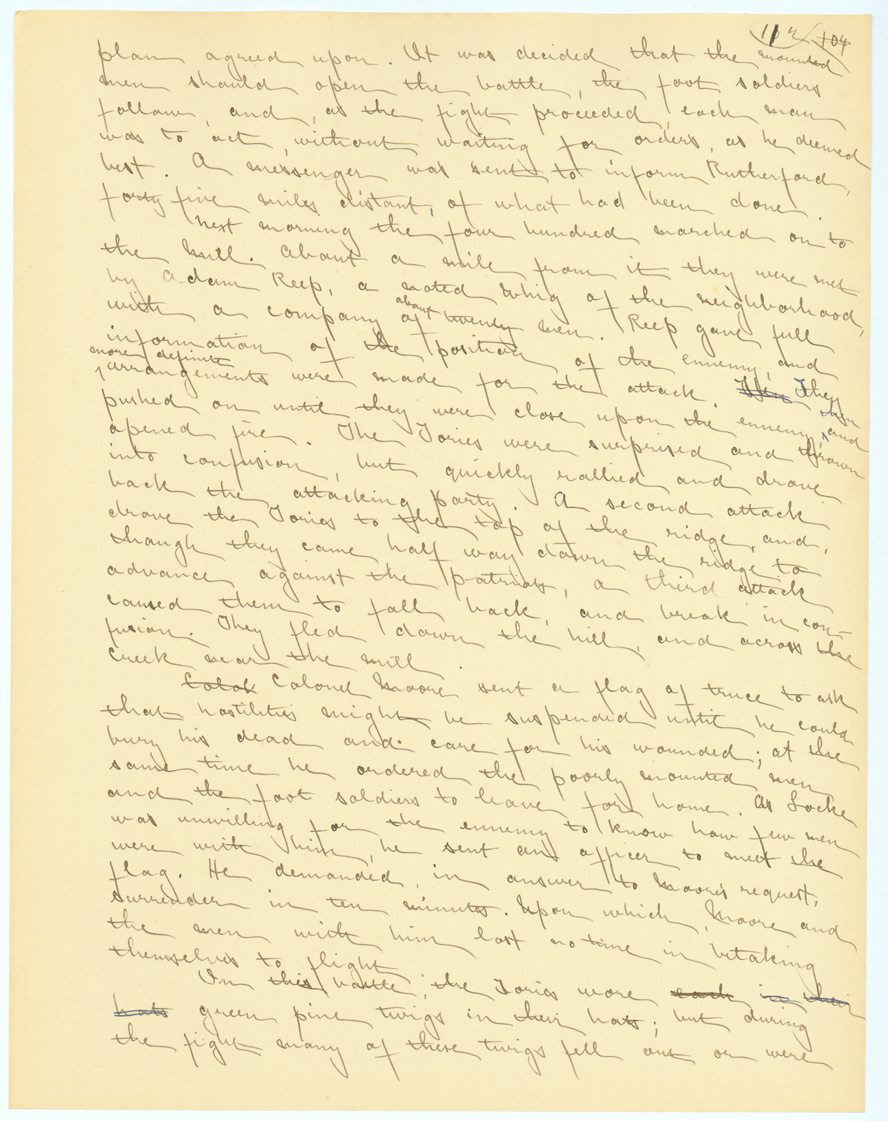 104
plan agreed upon. It was decided that the mounted
men should open the battle, the foot soldiers
follow, and, as the fight proceeded, each man
was to act, without waiting for orders, as he deemed
best. A messenger was sent to inform Rutherford,
forty five miles distant, of what had been done.
Next morning the four hundred marched on to
the Mill. About a mile from it they were met
by Adam Reep, a noted Whig of the neighborhood,
with a company of about twenty men. Reep gave full
information of the position of the ennemy, and
more definite
arrangements were made for the attack. They
pushed on until they were close upon the ennemy, then and
opened fire. The Tories were surprised and thrown
into confusion, but quickly rallied and drove
back the attacking party. A second attack
drove the Tories to the top of the ridge, and,
though they came half way down the ridge to
advance against the patriots, a third attack
caused them to fall back, and break in con-
fusion. They fled down the hill, and across the
creek near the mill.
Colonel Moore sent a flag of truce to ask
that hostilities might be suspended until he could
bury his dead and care for his wounded; at the
same time he ordered the poorly mounted men
and the foot soldiers to leave for home. As Locke
was unwilling for the ennemy to know how few men
were with him, he sent an officer to meet the
flag. He demanded, in answer to Moore's request,
surrender in ten minutes. Upon which, Moore and
the men with him lost no time in betaking
themselves to flight.
In this battle, the Tories wore each in their
hats green pine twigs in their hats; but during
the fight many of these twigs fell out or were